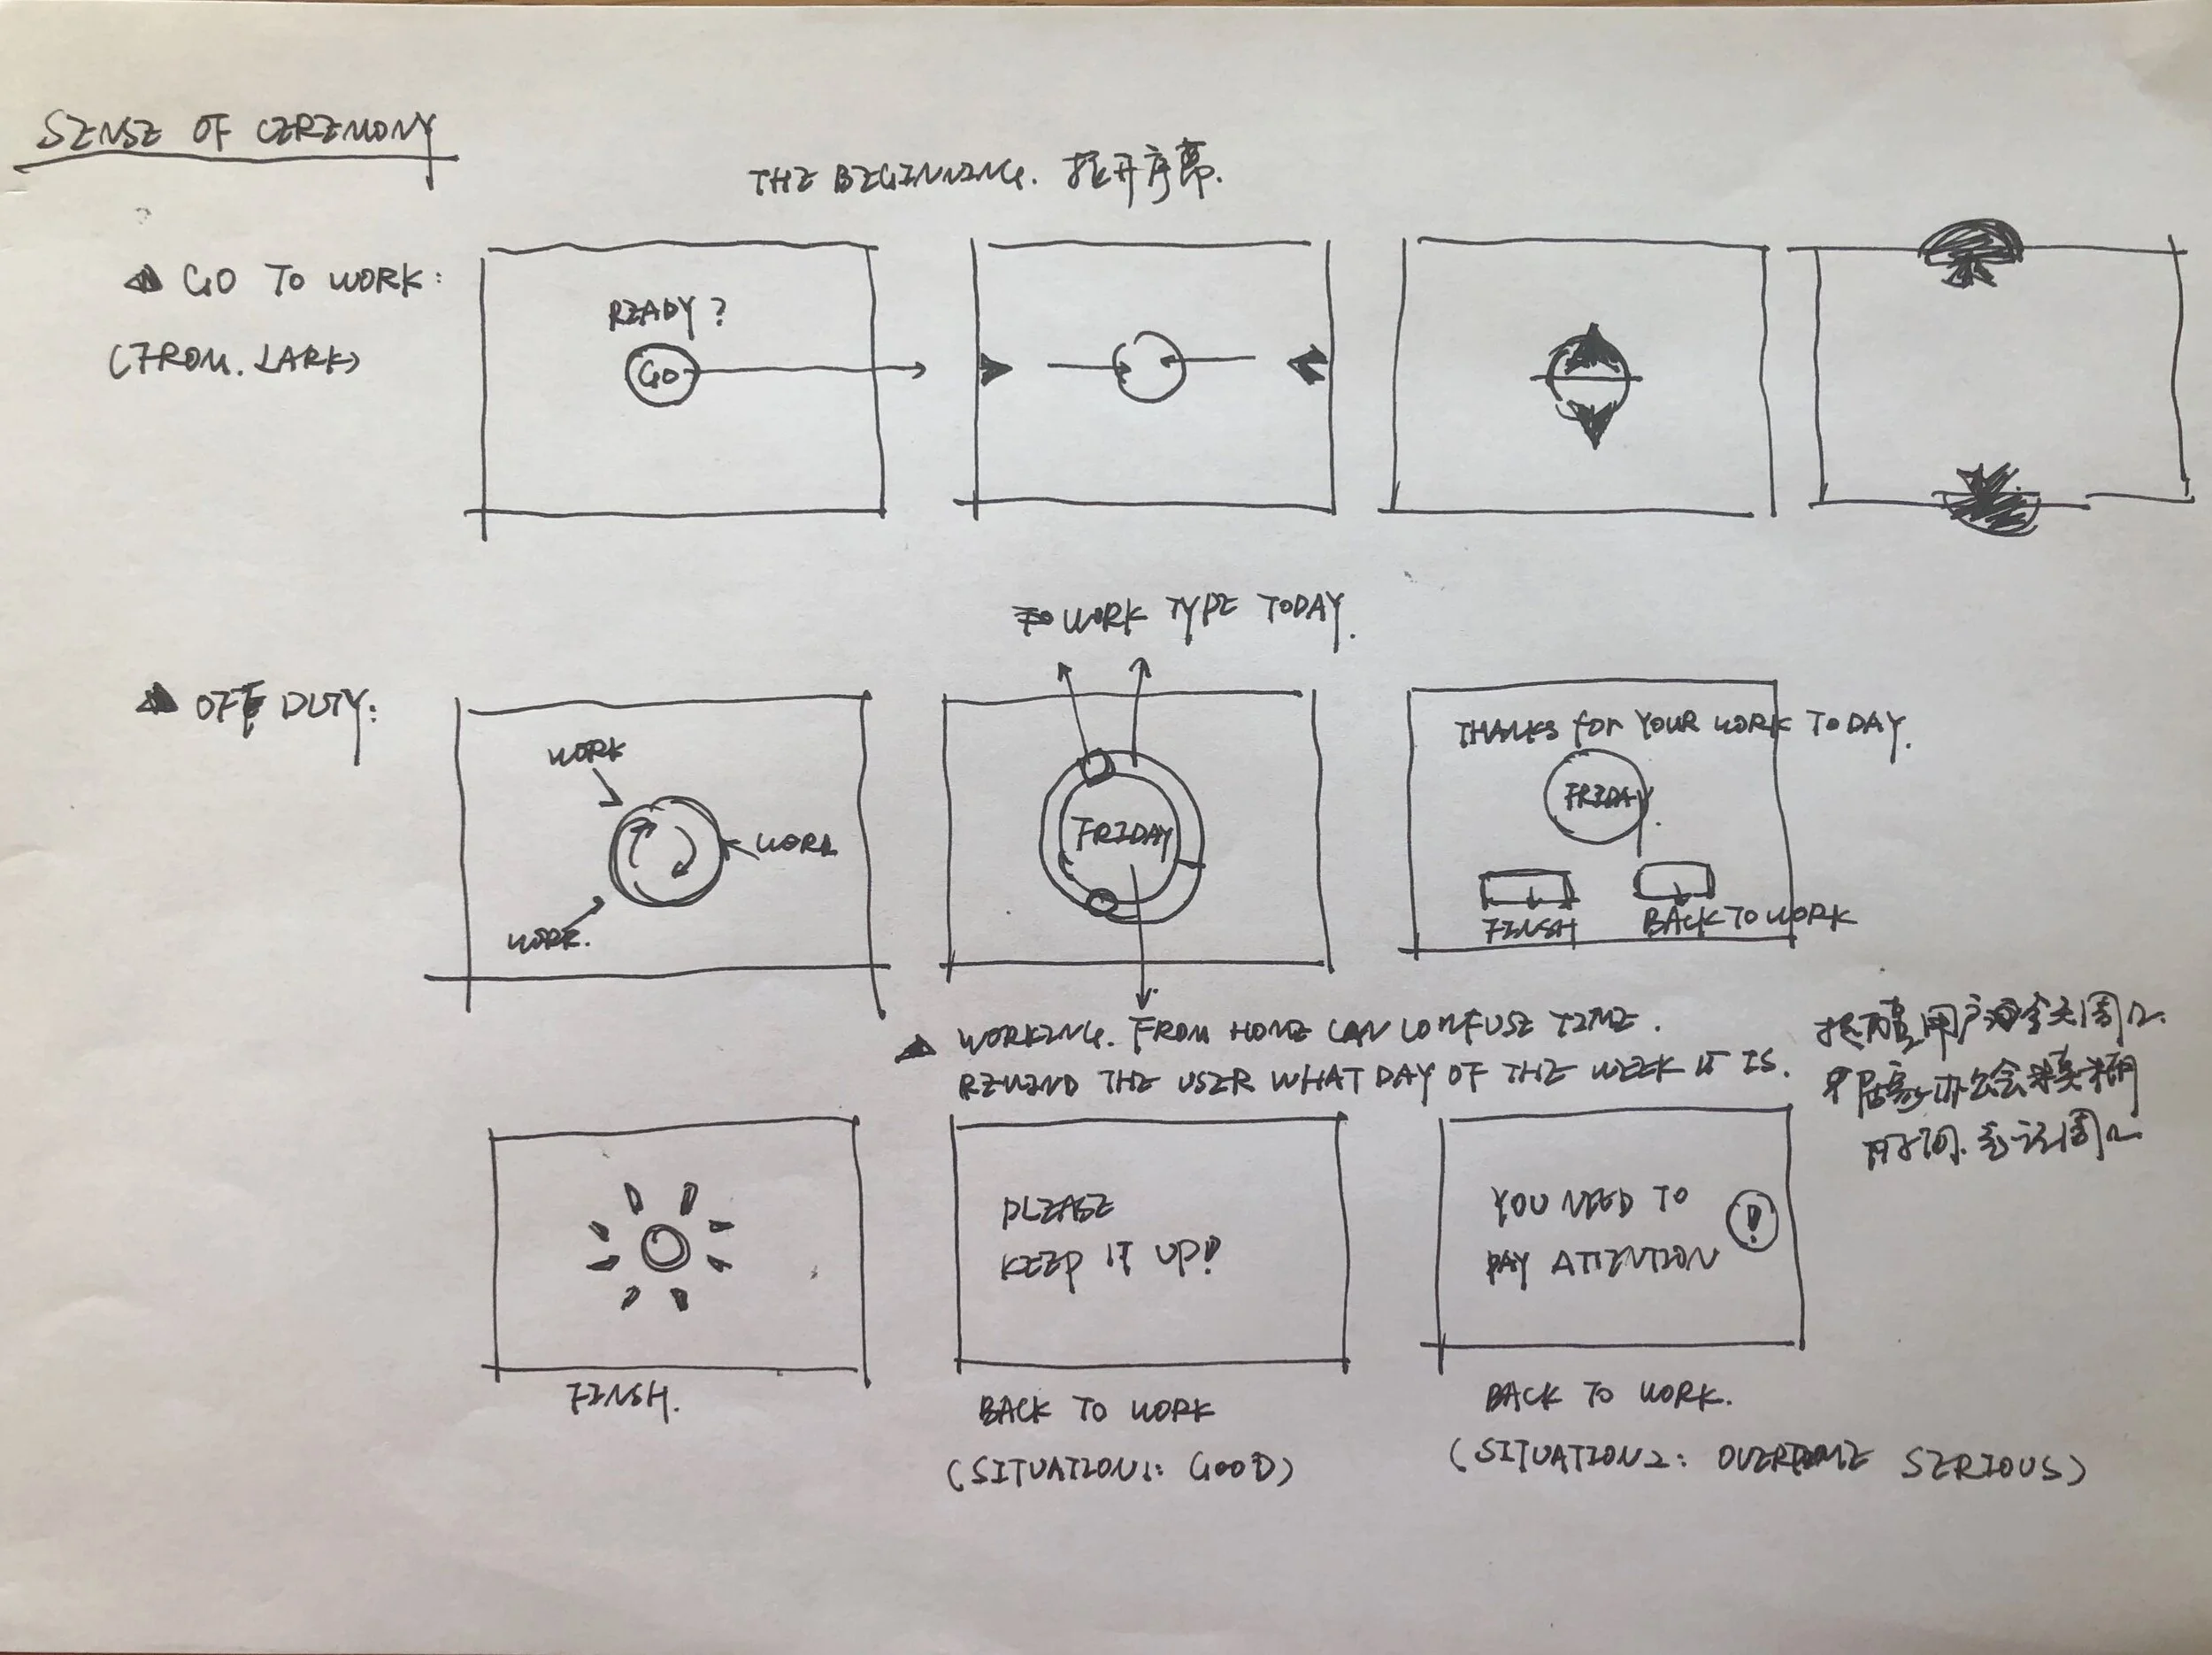 SENSE OF CEREMONY
THE BEGINNING. 拉开序幕.
GO TO WORK:
(FROM. LARK)
READY?
GO
WORK TYPE TODAY.
OFF DUTY:
WORK
WORK
WORK.
FRIDAY
THANKS for YOUR WORK TODAY.
FRIDAY
FINSH
BACK TO WORK
WORKING. FROM HOME CAN CONFUSE TIME.
REMIND THE USER WHAT DAY OF THE WEEK IT IS.
提醒用户今天周几.
居家办公会模糊
时间.忘记周几
PLEASE
KEEP IT UP!
YOU NEED TO
PAY ATTENTION
!
FINSH.
BACK TO WORK
(SITUATION1: GOOD)
BACK TO WORK.
(SITUATION2: OVERTIME SERIOUS)